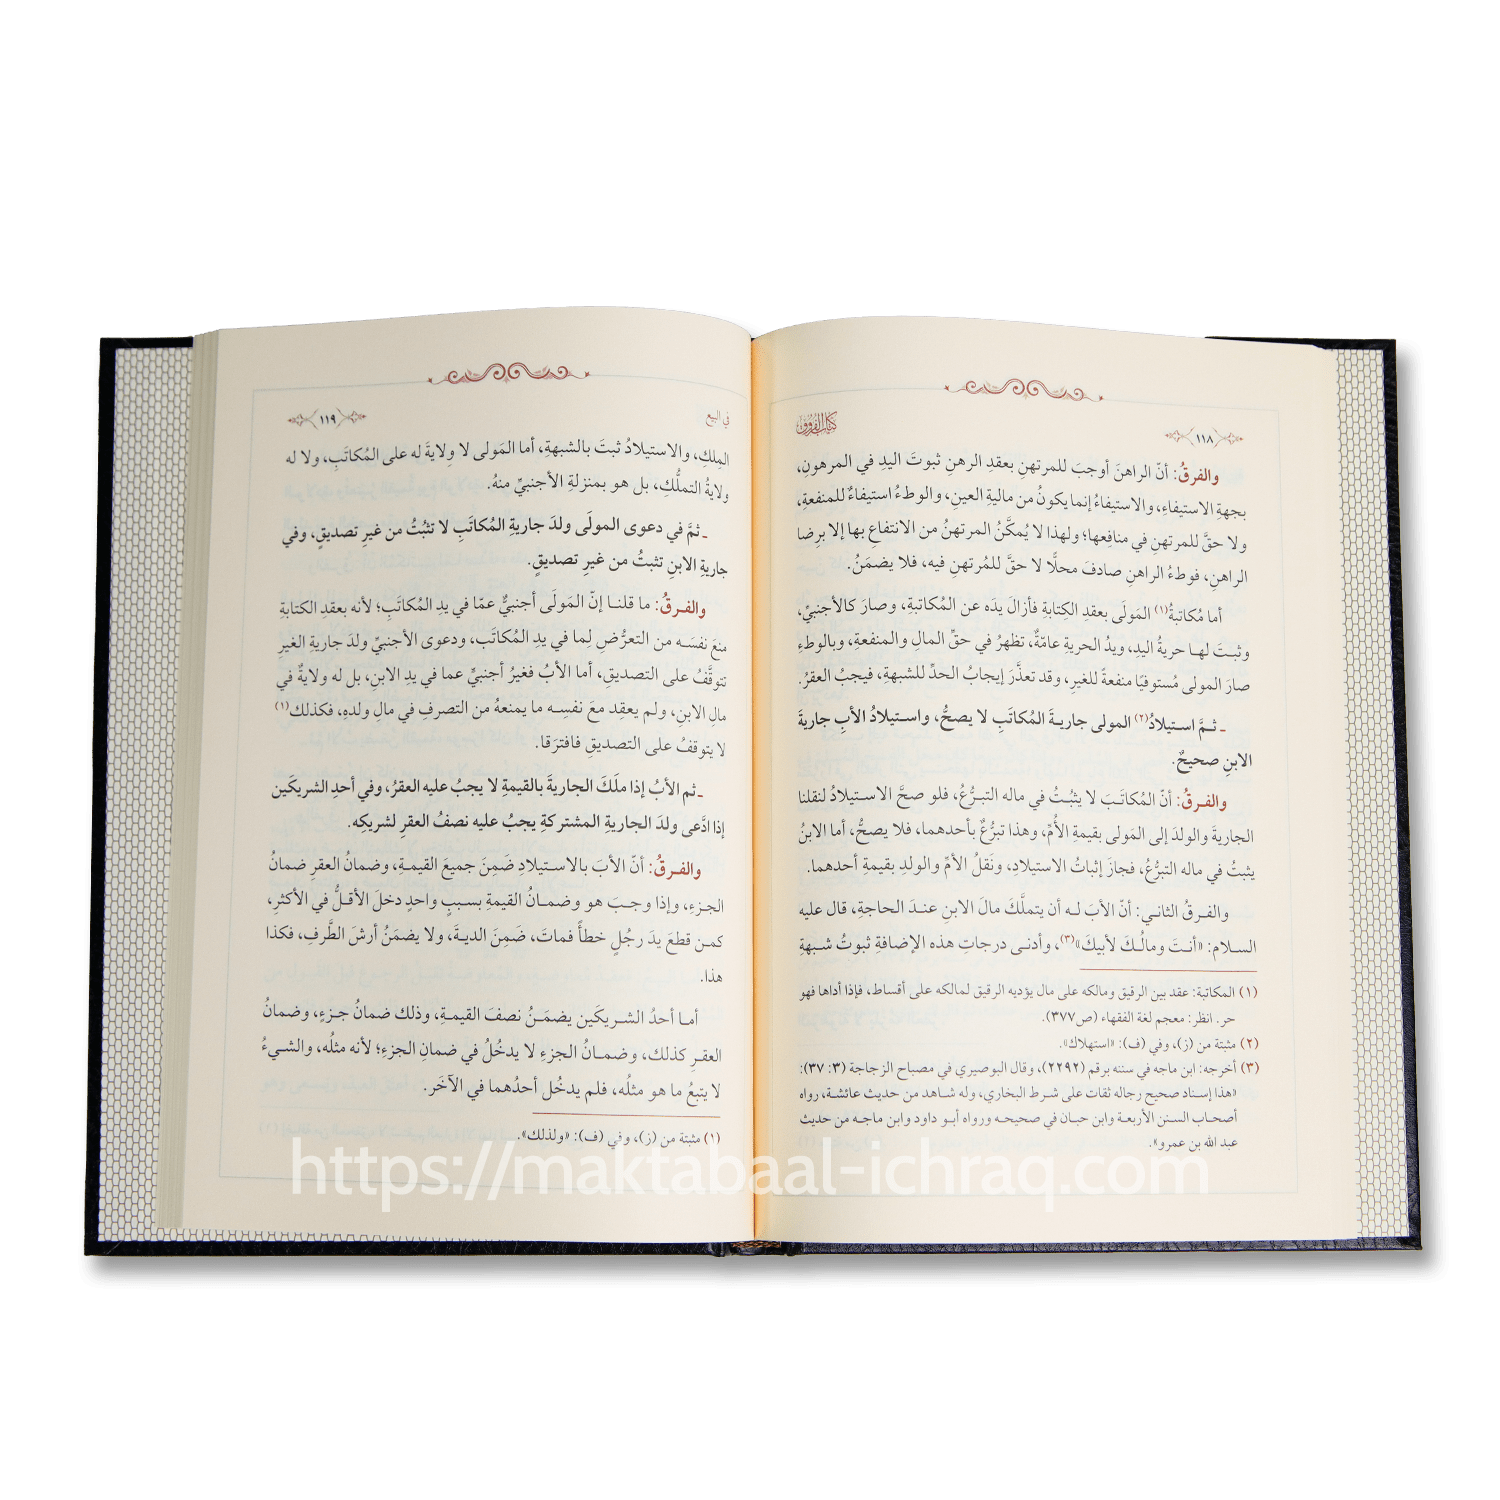 ١١٨
كتاب الفروق
والفرقُ: أنّ الراهنَ أوجبَ للمرتهنِ بعقدِ الرهنِ ثبوتَ اليدِ في المرهونِ،
بجهةِ الاستيفاءِ، والاستيفاءُ إنما يكونُ من ماليةِ العينِ، والوطءُ استيفاءٌ للمنفعةِ،
ولا حقَّ للمرتهنِ في منافعِها؛ ولهذا لا يُمكَّنُ المرتهنُ من الانتفاعِ بها إلا برِضا
الراهنِ، فوطءُ الراهنِ صادفَ محلًّا لا حقَّ للمُرتهنِ فيه، فلا يضمَنُ.
أما مُكاتبةُ(١) المَولَى بعقدِ الكِتابةِ فأزالَ يدَه عن المُكاتبةِ، وصارَ كالأجنبيِّ،
وثبـتَ لهـا حريةُ اليدِ، ويدُ الحريةِ عامّةٌ، تظهرُ في حقِّ المالِ والمنفعةِ، وبالوطءِ
صارَ المولى مُستوفيًا منفعةً للغيرِ، وقد تعذَّرَ إيجابُ الحدِّ للشبهةِ، فيجبُ العقرُ.
ـ ثـمَّ استيلادُ(٢) المولى جاريـةَ المُكاتَبِ لا يصحُّ، واسـتيلادُ الأبِ جاريةَ
الابنِ صحيحٌ.
والفـرقُ: أنّ المُكاتَـبَ لا يثبُـتُ في ماله التبـرُّعُ، فلو صحَّ الاسـتيلادُ لنقلنا
الجاريةَ والولدَ إلى المَولى بقيمةِ الأُمِّ، وهذا تبرُّعٌ بأحدهما، فلا يصحُّ، أما الابنُ
يثبتُ في ماله التبرُّعُ، فجازَ إثباتُ الاستيلادِ، ونَقلُ الأمِّ والولدِ بقيمةِ أحدهما.
والفـرقُ الثانـي: أنّ الأبَ لـه أن يتملَّكَ مالَ الابنِ عنـدَ الحاجةِ، قال عليه
السـلام: «أنـتَ ومالُـكَ لأبيكَ»(٣)، وأدنـى درجاتِ هذه الإضافةِ ثبوتُ شـبهةِ
(١) المكاتبة: عقد بين الرقيق ومالكه على مال يؤديه الرقيق لمالكه على أقساط، فإذا أداها فهو
حر. انظر: معجم لغة الفقهاء (ص٣٧٧).
(٢) مثبتة من (ز)، وفي (ف): «استهلاك».
(٣) أخرجه: ابن ماجه في سننه برقم (٢٢٩٢)، وقال البوصيري في مصباح الزجاجة (٣: ٣٧):
«هذا إسناد صحيح رجاله ثقات على شرط البخاري، وله شاهد من حديث عائشة، رواه
أصحاب السنن الأربعة وابن حبان في صحيحه ورواه أبـو داود وابن ماجـه من حديث
عبد الله بن عمرو».
في البيع
١١٩
المِلكِ، والاستيلادُ ثبتَ بالشبهةِ، أما المَولى لا وِلايةَ له على المُكاتَبِ، ولا له
ولايةُ التملُّكِ، بل هو بمنزلةِ الأجنبيِّ منهُ.
ـ ثمَّ في دعوى المولَى ولدَ جاريةِ المُكاتَبِ لا تثبُتُ من غيرِ تصديقٍ، وفي
جاريةِ الابنِ تثبتُ من غيرِ تصديقٍ.
والفـرقُ: ما قلنـا إنّ المَولَى أجنبيٌّ عمّا في يدِ المُكاتَبِ؛ لأنه بعقدِ الكتابةِ
منعَ نفسَـه من التعرُّضِ لِما في يدِ المُكاتَب، ودعوى الأجنبيِّ ولدَ جاريةِ الغيرِ
تتوقَّفُ على التصديقِ، أما الأبُ فغيرُ أجنبيٍّ عما في يدِ الابنِ، بل له ولايةٌ في
مالِ الابنِ، ولم يعقِد معَ نفسِـه ما يمنعهُ من التصرفِ في مالِ ولدهِ، فكذلك(١)
لا يتوقفُ على التصديقِ فافترَقا.
ـ ثم الأبُ إذا ملَكَ الجاريةَ بالقيمةِ لا يجبُ عليه العقرُ، وفي أحدِ الشريكَين
إذا ادَّعى ولدَ الجاريةِ المشتركةِ يجبُ عليه نصفُ العقرِ لشريكِه.
والفـرقُ: أنّ الأبَ بالاسـتيلادِ ضَمِنَ جميعَ القيمـةِ، وضمانُ العقرِ ضمانُ
الجـزءِ، وإذا وجـبَ هو وضمـانُ القيمةِ بسـببٍ واحدٍ دخلَ الأقـلُّ في الأكثرِ،
كمـن قطعَ يدَ رجُلٍ خطأً فماتَ، ضَمِنَ الديـةَ، ولا يضمَنُ أرشَ الطَّرفِ، فكذا
هذا.
أمـا أحدُ الشـريكَين يضمَـنُ نصفَ القيمـةِ، وذلك ضمانُ جـزءٍ، وضمانُ
العقـرِ كذلك، وضمـانُ الجزءِ لا يدخُلُ في ضمانِ الجزءِ؛ لأنه مثلُه، والشـيءُ
لا يتبعُ ما هو مثلُه، فلم يدخُل أحدُهما في الآخَر.
(١) مثبتة من (ز)، وفي (ف): «ولذلك».
https://maktabaal-ichraq.com